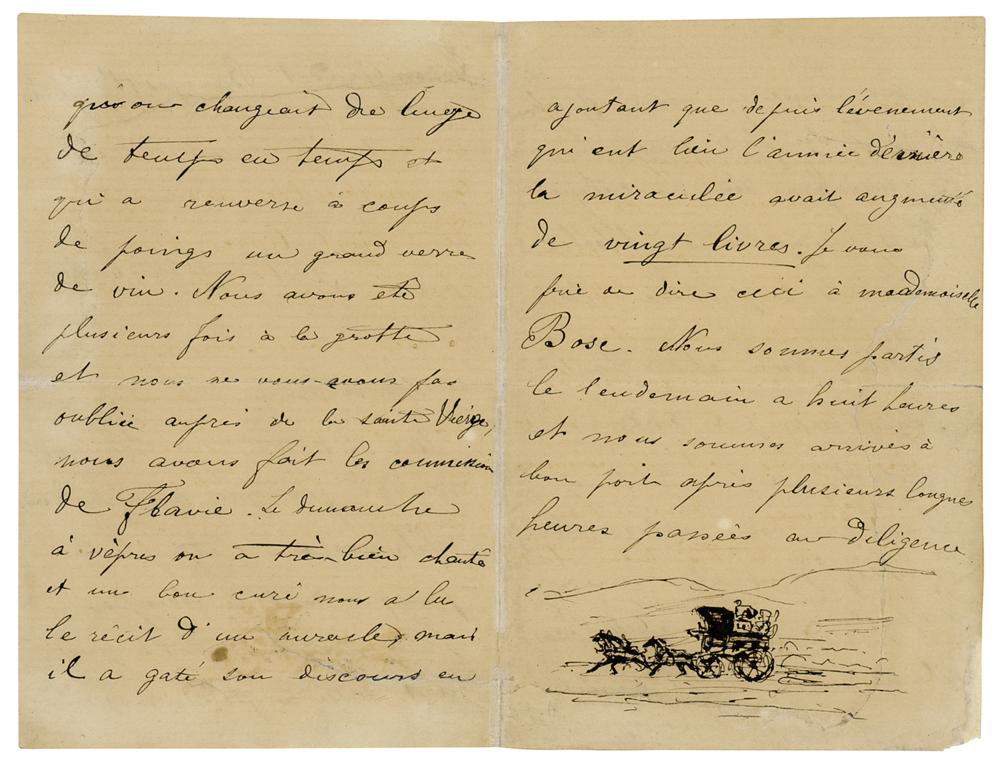 qu'on changeait de linge
de temps en temps et
qui a renversé à coups
de poings un grand verre
de vin. Nous avons été
plusieurs fois à la grotte
et nous ne vous avons pas
oubliée auprès de la sainte Vierge,
nous avons fait les commission
de Flavie. Le dimanche
à vèpres on a très bien chanté
et un bon curé nous a lu
le récit d'un miracle, mais
il a gaté son discours en
ajoutant que depuis l'évenement
qui eut lieu l'année dernière
la miraculée avait augmenté
de vingt livres. Je vous
prie de dire ceci à mademoiselle
Bosc. Nous sommes partis
le lendemain a huit heures
et nous sommes arrivés à
bon port après plusieurs longues
heures passées en diligence